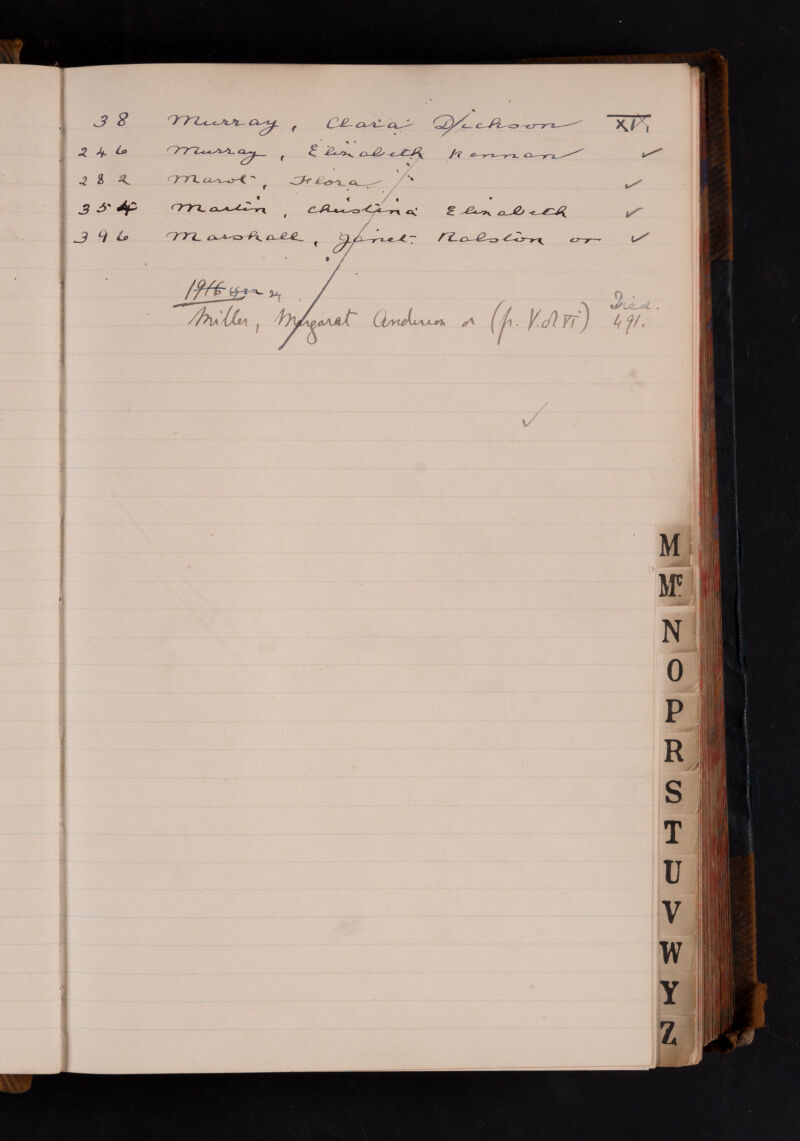 38 Murray, Clara Dickson XIV
246 Murray, Elizabeth Kennan ✓
282 Marot, Flora ✓
354 Martin, Christina Elizabeth ✓
396 Marshall, Janet Ralston or ✓
1916 24
Miller, Margaret Anderson or (p. V. of VI) Died. 491.
✓
M
Mc
N
O
P
R
S
T
U
V
W
Y
Z